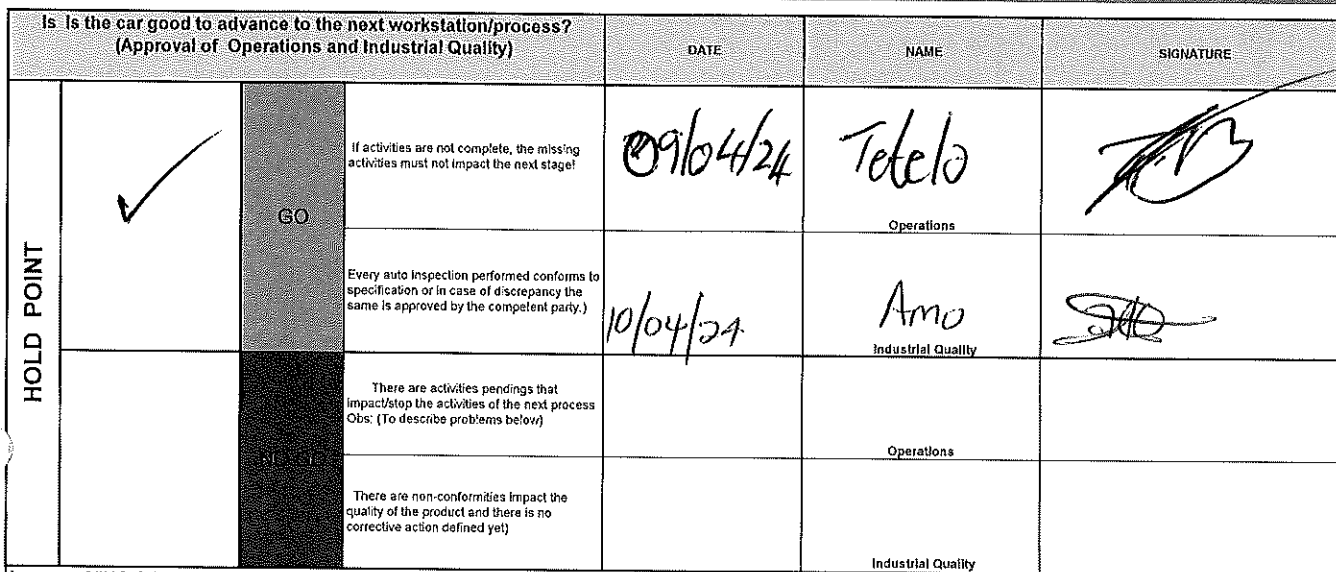 Is Is the car good to advance to the next workstation/process?
(Approval of Operations and Industrial Quality)
DATE
NAME
SIGNATURE
HOLD POINT
GO
If activities are not complete, the missing
activities must not impact the next stage!
09/04/24
Tetelo
Operations
Every auto inspection performed conforms to
specification or in case of discrepancy the
same is approved by the competent party.)
10/04/24
Amo
Industrial Quality
There are activities pendings that
impact/stop the activities of the next process
Obs: (To describe problems below)
Operations
There are non-conformities impact the
quality of the product and there is no
corrective action defined yet)
Industrial Quality